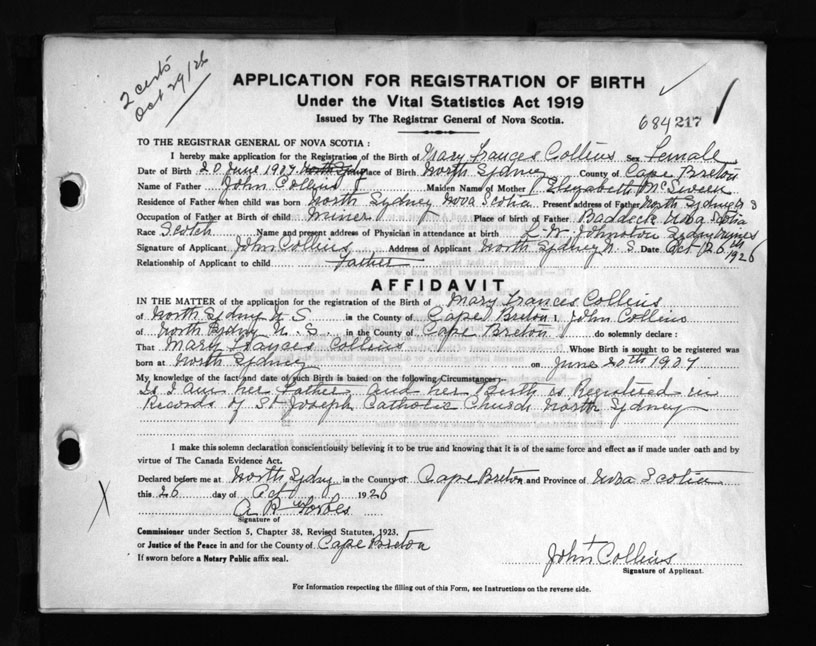 2 certs
Oct 29/26
APPLICATION FOR REGISTRATION OF BIRTH
Under the Vital Statistics Act 1919
Issued by The Registrar General of Nova Scotia.
684217
TO THE REGISTRAR GENERAL OF NOVA SCOTIA :
I hereby make application for the Registration of the Birth of Mary Frances Collins Sex Female
Date of Birth 20 June 1907 Place of Birth North Sydney County of Cape Breton
Name of Father John Collins Maiden Name of Mother Elizabeth McSween
Residence of Father when child was born North Sydney Nova Scotia Present address of Father North Sydney
Occupation of Father at Birth of child miner Place of birth of Father Baddeck Nova Scotia
Race Scotch Name and present address of Physician in attendance at birth Johnston Sydney mines
Signature of Applicant John Collins Address of Applicant North Sydney N. S. Date Oct 26th 1926
Relationship of Applicant to child Father
AFFIDAVIT
IN THE MATTER of the application for the registration of the Birth of Mary Frances Collins
of North Sydney N S in the County of Cape Breton I, John Collins
of North Sydney N. S. in the County of Cape Breton do solemnly declare :
That Mary Frances Collins Whose Birth is sought to be registered was
born at North Sydney on June 20th 1907
My knowledge of the fact and date of such Birth is based on the following Circumstances
Is I am her Father and her Birth is Registered in
Records of St Joseph Catholic Church North Sydney
I make this solemn declaration conscientiously believing it to be true and knowing that it is of the same force and effect as if made under oath and by
virtue of The Canada Evidence Act.
Declared before me at North Sydney in the County of Cape Breton and Province of Nova Scotia
this 26 day of Oct 1926
Signature of
Commissioner under Section 5, Chapter 38, Revised Statutes, 1923,
or Justice of the Peace in and for the County of Cape Breton
If sworn before a Notary Public affix seal.
John Collins
Signature of Applicant.
For Information respecting the filling out of this Form, see Instructions on the reverse side.